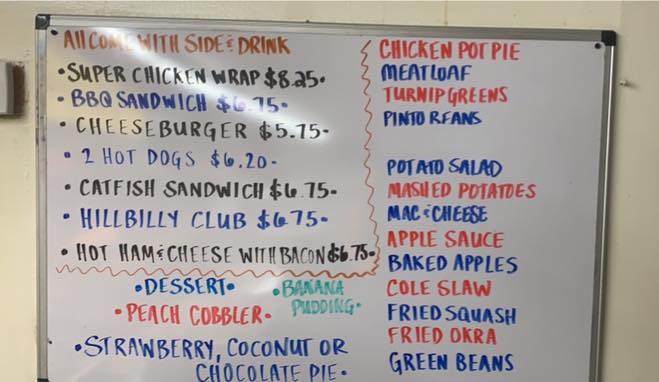 All COME WITH SIDE & DRINK
• SUPER CHICKEN WRAP $8.25-
• BBQ SANDWICH $6.75-
• CHEESEBURGER $5.75-
• 2 HOT DOGS $6.20-
• CATFISH SANDWICH $6.75-
• HILLBILLY CLUB $6.75-
• HOT HAM & CHEESE WITH BACON $6.75-
• DESSERT •
• BANANA
PUDDING •
• PEACH COBBLER •
• STRAWBERRY, COCONUT OR
CHOCOLATE PIE •
CHICKEN POT PIE
MEATLOAF
TURNIP GREENS
PINTO BEANS
POTATO SALAD
MASHED POTATOES
MAC & CHEESE
APPLE SAUCE
BAKED APPLES
COLE SLAW
FRIED SQUASH
FRIED OKRA
GREEN BEANS